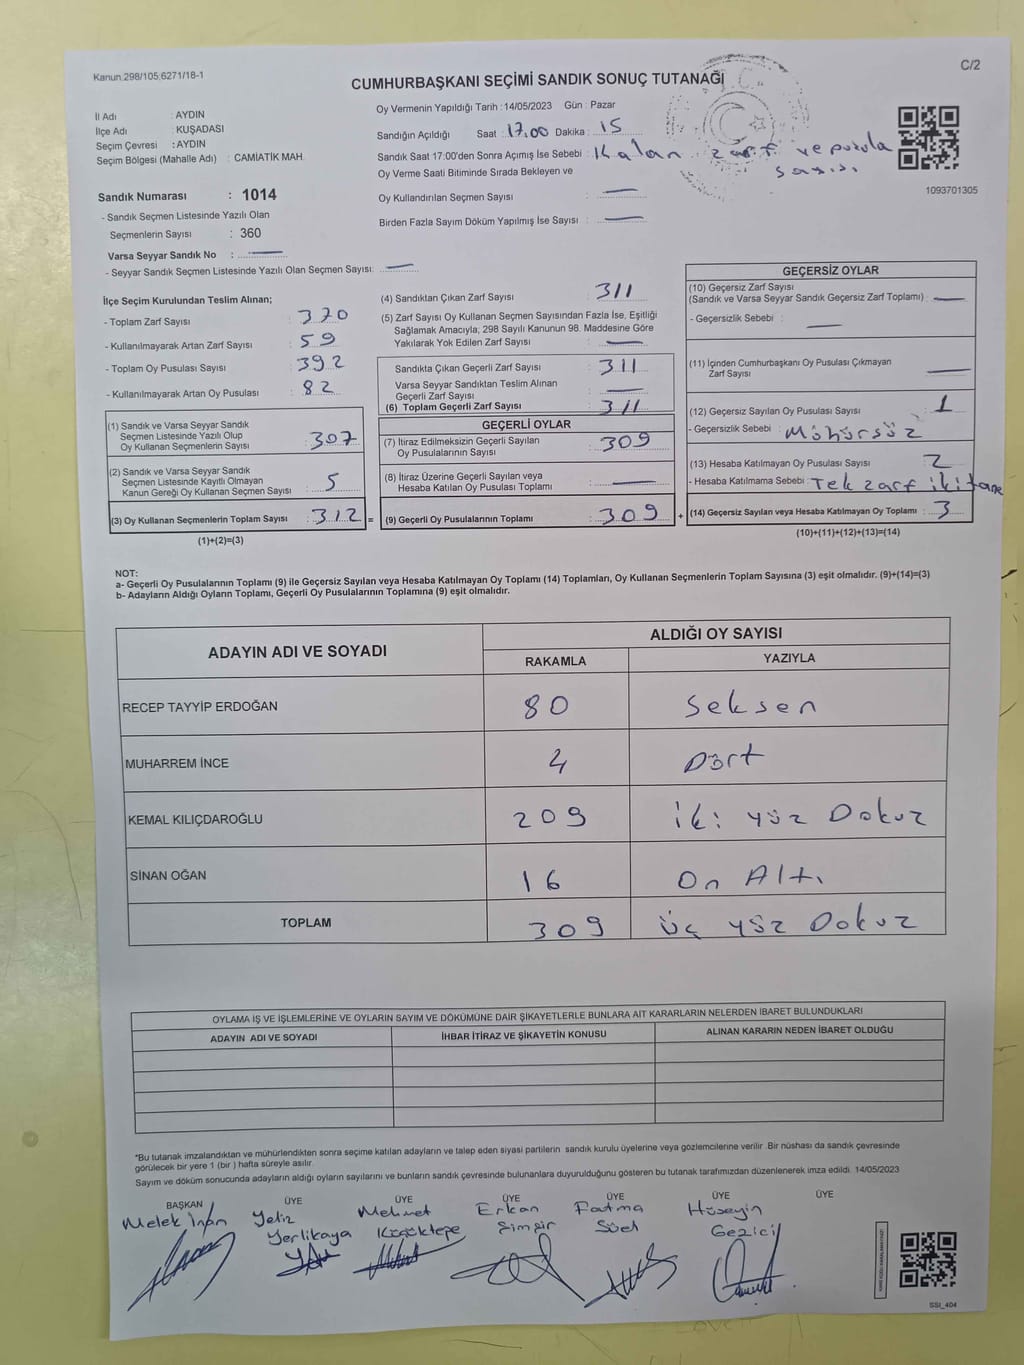 Kanun:298/105;6271/18-1
C/2
CUMHURBAŞKANI SEÇİMİ SANDIK SONUÇ TUTANAĞI
İl Adı : AYDIN
İlçe Adı : KUŞADASI
Seçim Çevresi : AYDIN
Seçim Bölgesi (Mahalle Adı) : CAMİATİK MAH.
Oy Vermenin Yapıldığı Tarih : 14/05/2023 Gün : Pazar
Sandığın Açıldığı Saat : 17.00 Dakika : 15
Sandık Saat 17:00'den Sonra Açımış İse Sebebi : Kalan zarf ve pusula sayısı.
Oy Verme Saati Bitiminde Sırada Bekleyen ve
Oy Kullandırılan Seçmen Sayısı : —
Birden Fazla Sayım Döküm Yapılmış İse Sayısı : —
1093701305
Sandık Numarası : 1014
- Sandık Seçmen Listesinde Yazılı Olan
Seçmenlerin Sayısı : 360
Varsa Seyyar Sandık No : —
- Seyyar Sandık Seçmen Listesinde Yazılı Olan Seçmen Sayısı: —
İlçe Seçim Kurulundan Teslim Alınan;
- Toplam Zarf Sayısı : 370
- Kullanılmayarak Artan Zarf Sayısı : 59
- Toplam Oy Pusulası Sayısı : 392
- Kullanılmayarak Artan Oy Pusulası : 82
(1) Sandık ve Varsa Seyyar Sandık
Seçmen Listesinde Yazılı Olup
Oy Kullanan Seçmenlerin Sayısı : 307
(2) Sandık ve Varsa Seyyar Sandık
Seçmen Listesinde Kayıtlı Olmayan
Kanun Gereği Oy Kullanan Seçmen Sayısı : 5
(3) Oy Kullanan Seçmenlerin Toplam Sayısı : 312 =
(1)+(2)=(3)
(4) Sandıktan Çıkan Zarf Sayısı : 311
(5) Zarf Sayısı Oy Kullanan Seçmen Sayısından Fazla İse, Eşitliği
Sağlamak Amacıyla; 298 Sayılı Kanunun 98. Maddesine Göre
Yakılarak Yok Edilen Zarf Sayısı : —
Sandıkta Çıkan Geçerli Zarf Sayısı : 311
Varsa Seyyar Sandıktan Teslim Alınan
Geçerli Zarf Sayısı : —
(6) Toplam Geçerli Zarf Sayısı : 311
GEÇERLİ OYLAR
(7) İtiraz Edilmeksizin Geçerli Sayılan
Oy Pusulalarının Sayısı : 309
(8) İtiraz Üzerine Geçerli Sayılan veya
Hesaba Katılan Oy Pusulası Toplamı : —
(9) Geçerli Oy Pusulalarının Toplamı : 309 +
GEÇERSİZ OYLAR
(10) Geçersiz Zarf Sayısı
(Sandık ve Varsa Seyyar Sandık Geçersiz Zarf Toplamı) : —
- Geçersizlik Sebebi : —
(11) İçinden Cumhurbaşkanı Oy Pusulası Çıkmayan
Zarf Sayısı : —
(12) Geçersiz Sayılan Oy Pusulası Sayısı : 1
- Geçersizlik Sebebi : Mühürsüz
(13) Hesaba Katılmayan Oy Pusulası Sayısı : 2
- Hesaba Katılmama Sebebi : Tek zarf iki tane
(14) Geçersiz Sayılan veya Hesaba Katılmayan Oy Toplamı : 3
(10)+(11)+(12)+(13)=(14)
NOT:
a- Geçerli Oy Pusulalarının Toplamı (9) ile Geçersiz Sayılan veya Hesaba Katılmayan Oy Toplamı (14) Toplamları, Oy Kullanan Seçmenlerin Toplam Sayısına (3) eşit olmalıdır. (9)+(14)=(3)
b- Adayların Aldığı Oyların Toplamı, Geçerli Oy Pusulalarının Toplamına (9) eşit olmalıdır.
ADAYIN ADI VE SOYADI
ALDIĞI OY SAYISI
RAKAMLA YAZIYLA
RECEP TAYYİP ERDOĞAN 80 Seksen
MUHARREM İNCE 4 Dört
KEMAL KILIÇDAROĞLU 209 iki yüz Dokuz
SİNAN OĞAN 16 On Altı
TOPLAM 309 üç yüz Dokuz
OYLAMA İŞ VE İŞLEMLERİNE VE OYLARIN SAYIM VE DÖKÜMÜNE DAİR ŞİKAYETLERLE BUNLARA AİT KARARLARIN NELERDEN İBARET BULUNDUKLARI
ADAYIN ADI VE SOYADI İHBAR İTİRAZ VE ŞİKAYETİN KONUSU ALINAN KARARIN NEDEN İBARET OLDUĞU
*Bu tutanak imzalandıktan ve mühürlendikten sonra seçime katılan adayların ve talep eden siyasi partilerin sandık kurulu üyelerine veya gözlemcilerine verilir .Bir nüshası da sandık çevresinde
görülecek bir yere 1 (bir ) hafta süreyle asılır.
Sayım ve döküm sonucunda adayların aldığı oyların sayılarını ve bunların sandık çevresinde bulunanlara duyurulduğunu gösteren bu tutanak tarafımızdan düzenlenerek imza edildi. 14/05/2023
BAŞKAN ÜYE ÜYE ÜYE ÜYE ÜYE ÜYE
Melek İnan Yeliz Mehmet Erkan Fatma Hüseyin
Yerlikaya Küçüktepe Şimşir Süel Gezici
SSI_404